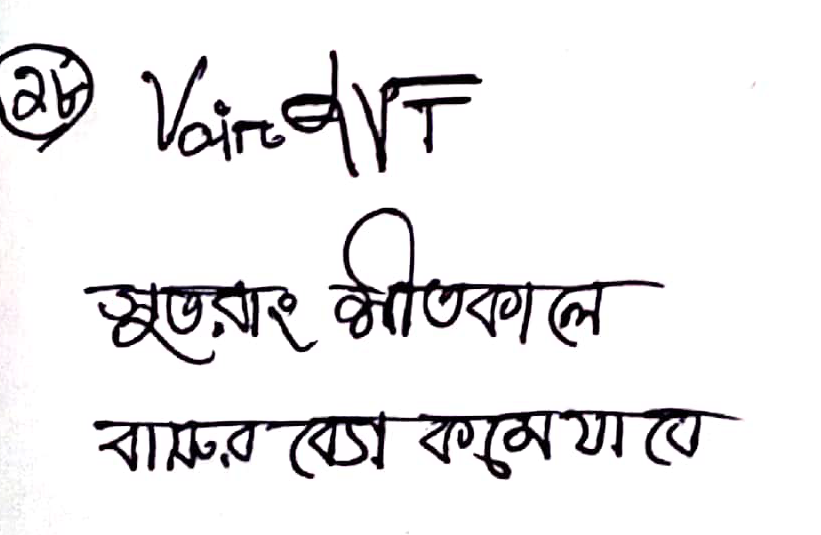 ২৮ Vair ∝ √T
সুতরাং শীতকালে
বায়ুর বেগ কমে যাবে